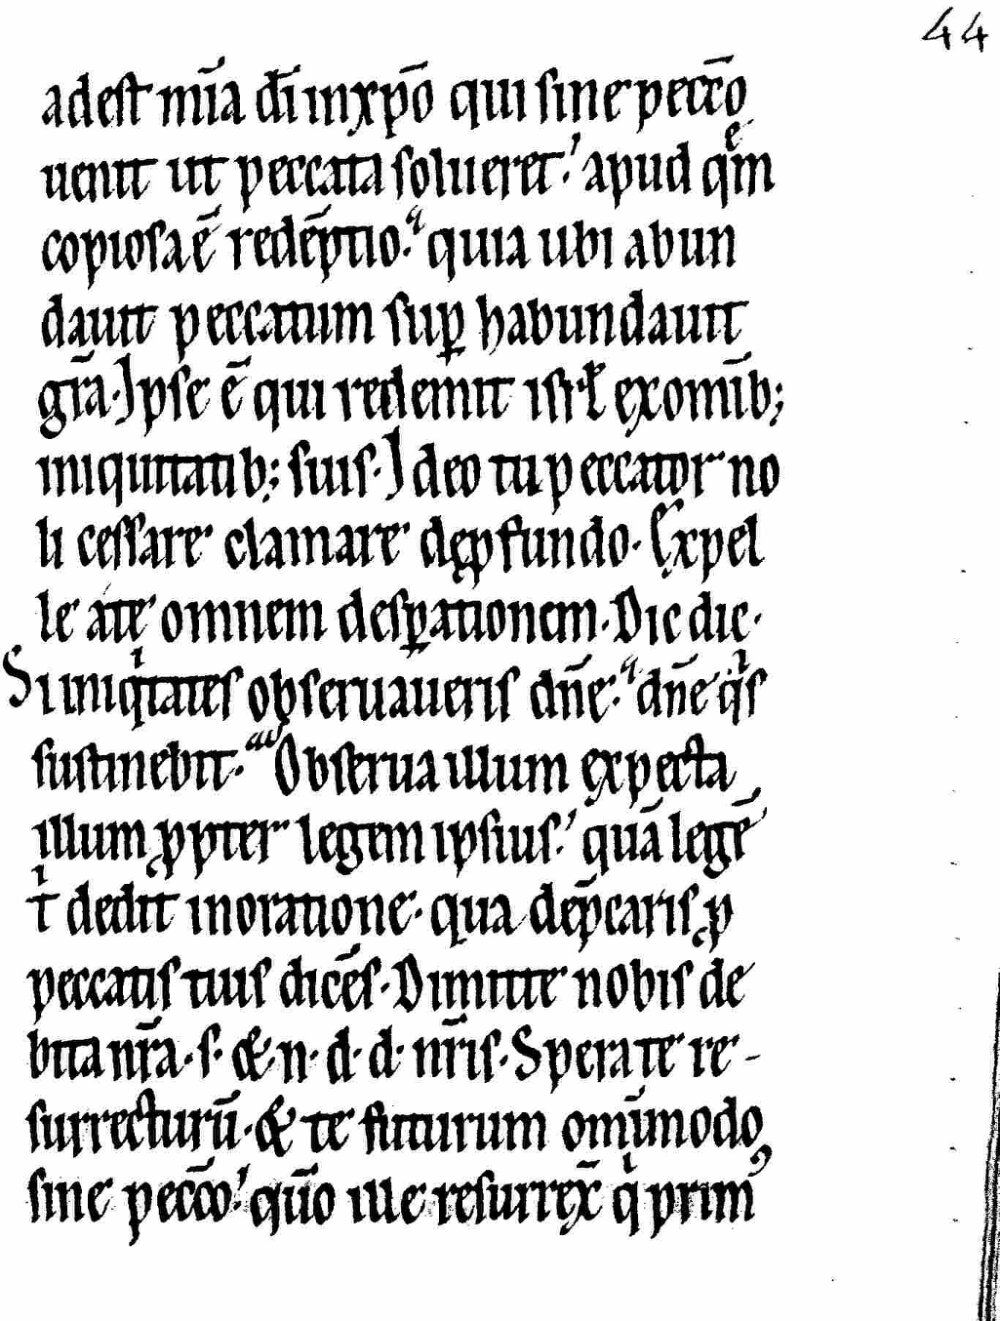 44
adest mīa dī inxp̄o qui sine pecc̄o
uenit ut peccata solueret. apud quē̄m
copiosa ē redēptio. quia ubi abun
dauit peccatum suꝑ habundauit
gr̄a. Ipse ē qui redemit isrł exomīb;
iniquitatib; suis. Ideo tu peccator no
li cessare clamare deꝓfundo. Expel
le ate omnem desꝑationem. Dic dic.
Si iniqͥtates obseruaueris dn̄e. dn̄e qͥs
sustinebit. Obserua illum expecta
illum ꝓpter legem ipsius. quā legē
tͥ dedit inoratione. qua dep̄caris ꝓ
peccatis tuis dicēs. Dimitte nobis de
bita nr̄a. s. & n. d. d. nr̄is. Spera te re-
surrecturū. & te futurum omīmodo
sine pecc̄o. quō ille resurrex̄ qͥ primꝰ